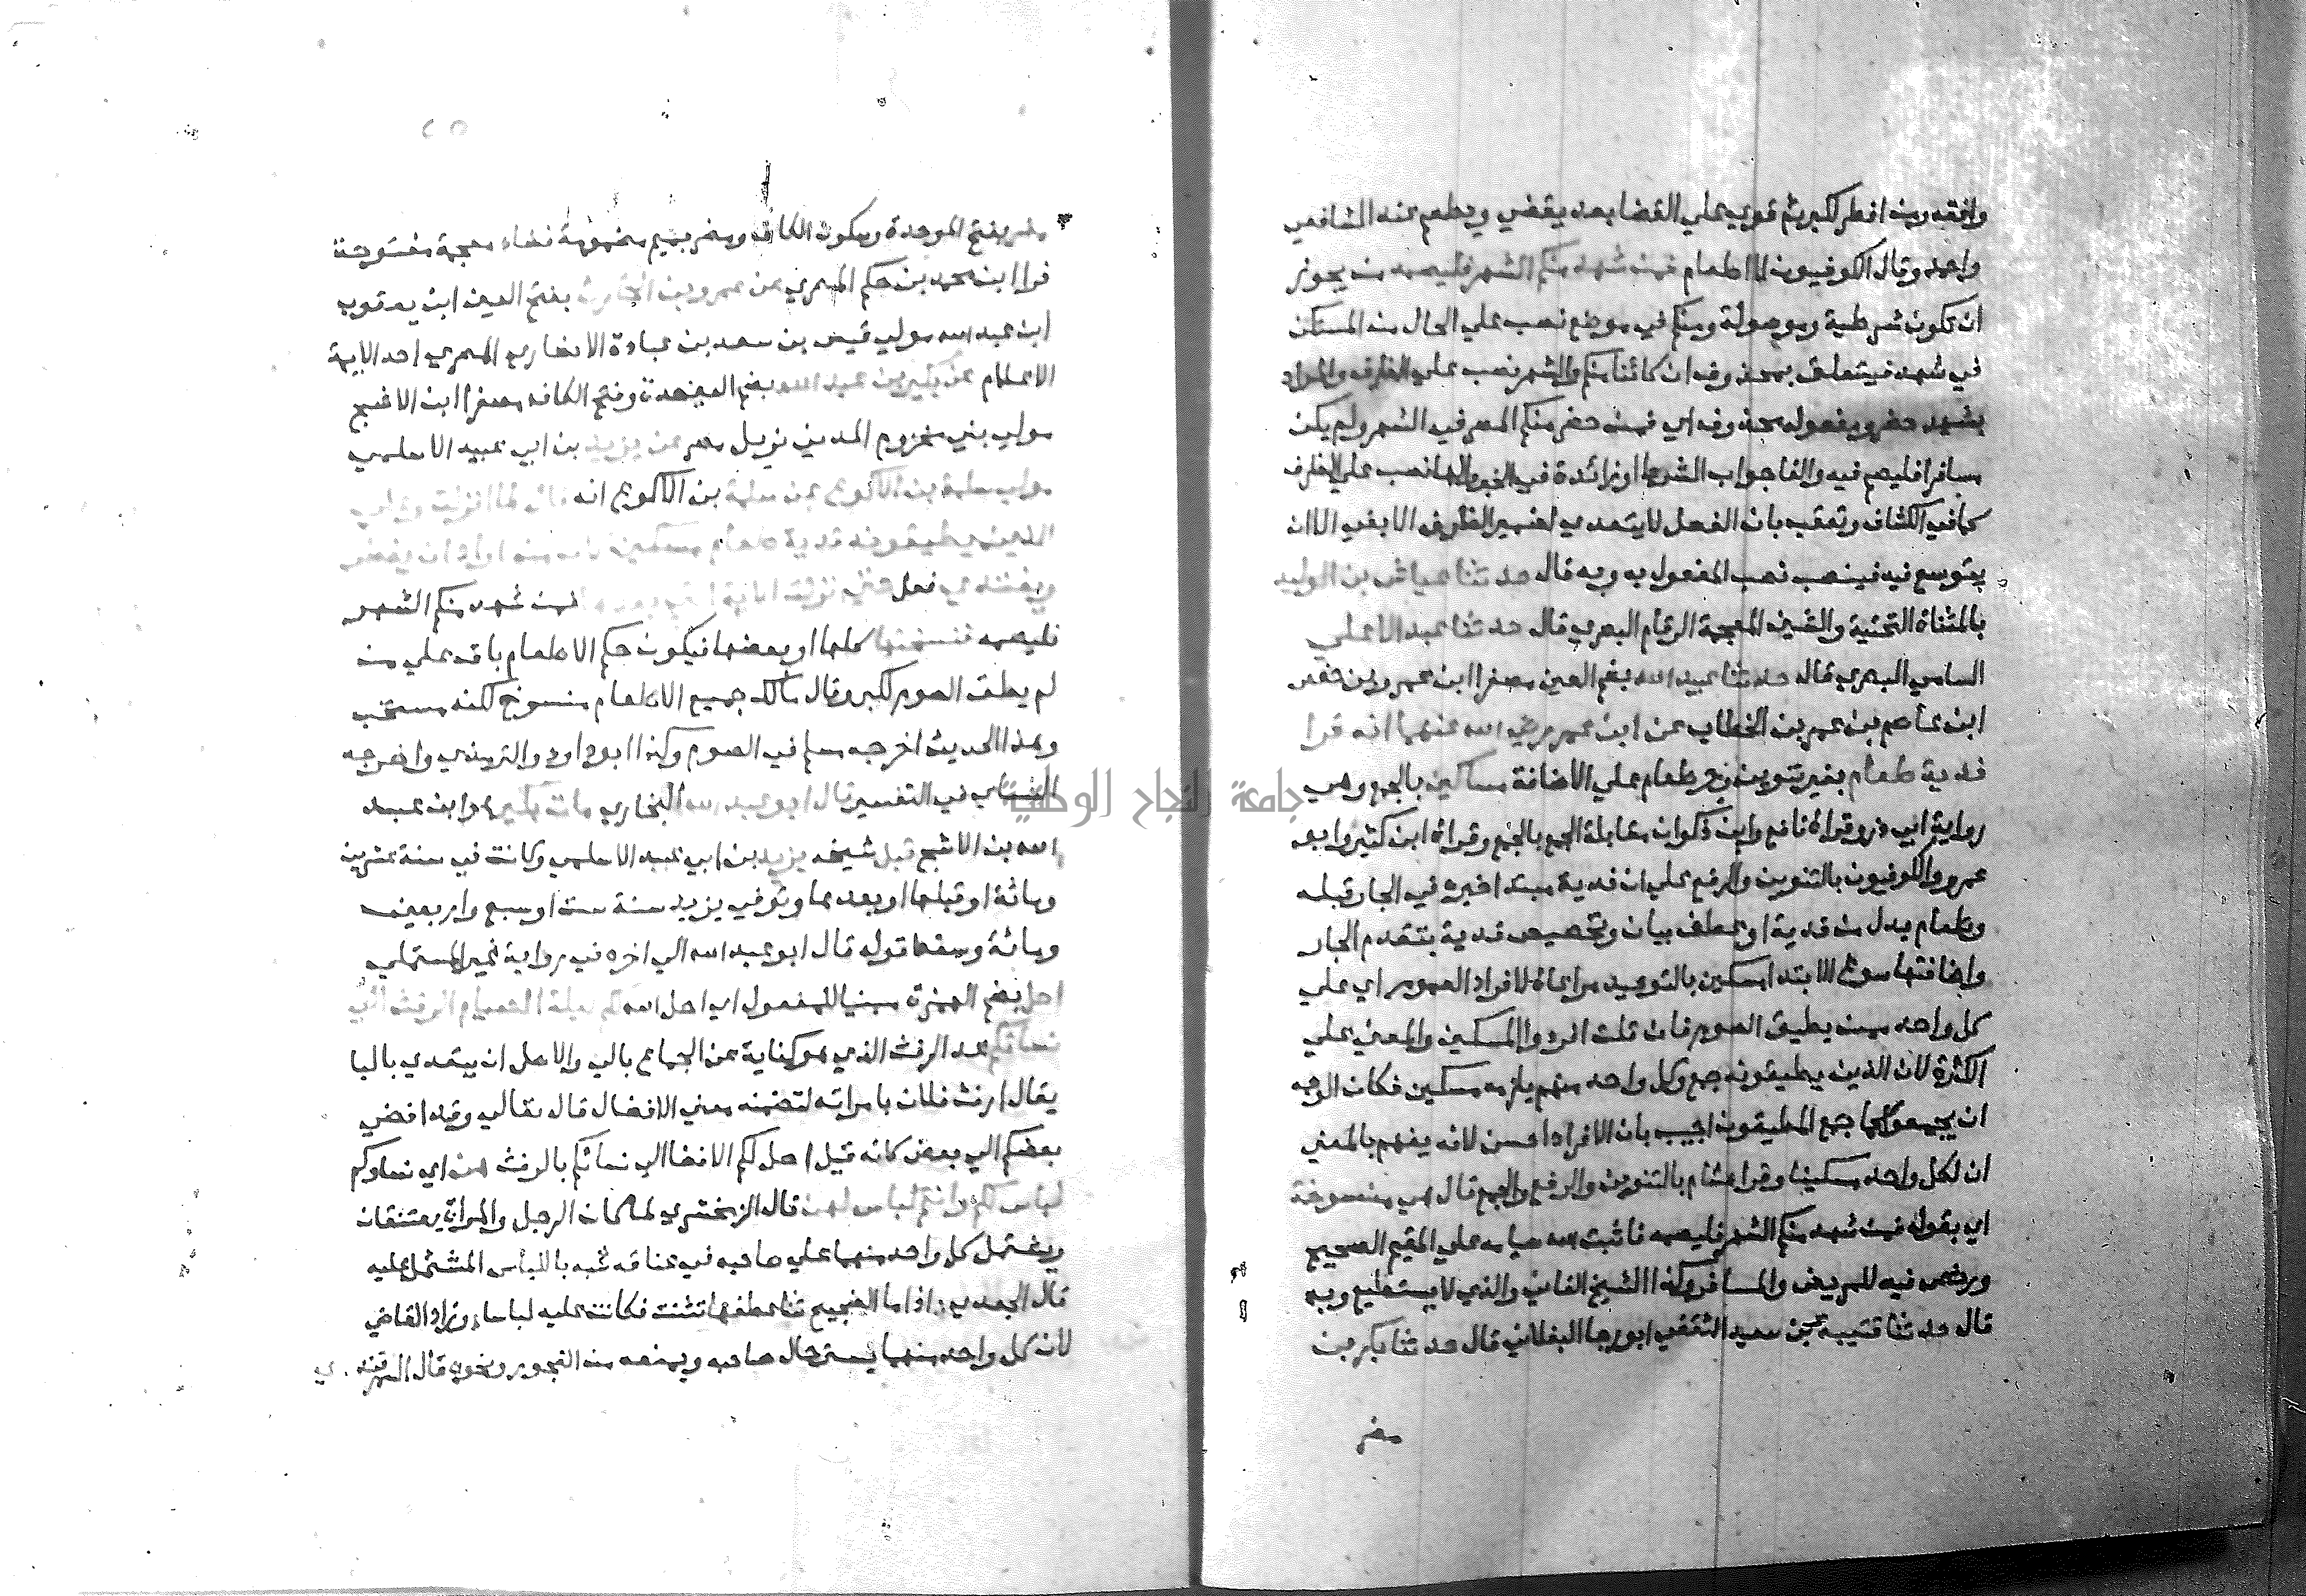 وافقه ومن افطر لكبر ثم قوي علي القضا بعد يقضي ويطعم عند الشافعي
واحمد وقال الكوفيون لا اطعام فمن شهد منكم الشهر فليصمه من يجوز
ان تكون شرطية وموصولة ومنكم في موضع نصب علي الحال من المستكن
في شهد فيتعلق بمحذوف ان كائنا منكم والشهر نصب علي الظرف والمراد
بشهد حضر ومفعوله محذوف اي فمن حضر منكم المصر في الشهر ولم يكن
مسافرا فليصم فيه والفا جواب الشرط او زائدة في الخبر والها نصب علي الظرف
كما في الكشاف وتعقب بان الفعل لا يتعدي لضمير الظرف الا بفي الا ان
يتوسع فيه فينصب نصب المفعول به وبه قال حدثنا عياش بن الوليد
بالمثناة التحتية والشين المعجمة الرقام البصري قال حدثنا عبد الاعلي
السامي البصري قال حدثنا عبيد الله بضم العين مصغرا ابن عمر بن حفص
ابن عاصم بن عمر بن الخطاب عن ابن عمر رضي الله عنهما انه قرا
فدية طعام بغير تنوين وجر طعام علي الاضافة مساكين بالجمع وهي
رواية ابي ذر وقراة نافع وابن ذكوان مقابلة الجمع بالجمع وقراة ابن كثير وابو
عمرو والكوفيون بالتنوين والرفع علي ان فدية مبتدا خبره في الجار قبله
وطعام بدل من فدية او عطف بيان وتخصيص فدية بتقدم الجار
واضافتها سوغ الابتدا مسكين بالتوحيد مراعاة لافراد العموم اي علي
كل واحد ممن يطيق الصوم فان قلت افردوا المسكين والمعني علي
الكثرة لان الذين يطيقونه جمع وكل واحد منهم يلزمه مسكين فكان الوجه
ان يجمعوا كما جمع المطيقون اجيب بان الافراد احسن لانه يفهم بالمعني
ان لكل واحد مسكينا وقرا هشام بالتنوين والرفع والجمع قال هي منسوخة
اي بقوله فمن شهد منكم الشهر فليصمه فاثبت الله صيامه علي المقيم الصحيح
ورخص فيه للمريض والمسافر وكذا الشيخ الفاني والذي لا يستطيع وبه
قال حدثنا قتيبة بن سعيد الثقفي ابو رجا البغلاني قال حدثنا بكر بن
مضر
مضر بفتح الموحدة وسكون الكاف ومضر بميم مضمومة فضاد معجمة مفتوحة
فرا ابن محمد بن حكم المصري عن عمرو بن الحارث بفتح العين ابن يعقوب
ابن عبد الله مولي قيس بن سعد بن عبادة الانصاري المصري احد الايمة
الاعلام عن بكير بن عبد الله بضم الموحدة وفتح الكاف مصغرا ابن الاشج
مولي بني مخزوم المدني نزيل مصر عن يزيد بن ابي عبيد الاسلمي
مولي سلمة بن الاكوع عن سلمة بن الاكوع انه قال لما نزلت وعلي
الذين يطيقونه فدية طعام مسكين كان من اراد ان يفطر
ويفتدي فعل حتي نزلت الاية التي بعدها فمن شهد منكم الشهر
فليصمه فنسختها كلها او بعضها فيكون حكم الاطعام باق علي من
لم يطق الصوم لكبر وقال مالك جميع الاطعام منسوخ لكنه مستحب
وهذا الحديث اخرجه مسلم في الصوم وكذا ابو داود والترمذي واخرجه
النساي في التفسير قال ابو عبد الله البخاري مات بكير هو ابن عبد
الله بن الاشج قبل شيخه يزيد بن ابي عبيد الاسلمي وكانت في سنة عشرين
ومائة او قبلها او بعدها وتوفي يزيد سنة ست او سبع واربعين
ومائة وسقط قوله قال ابو عبد الله الي اخره في رواية غير المستملي
احل بضم الهمزة مبنيا للمفعول اي احل الله لكم ليلة الصيام الرفث الي
نسائكم عد الرفث الذي هو كناية عن الجماع بالي والاصل ان يتعدي بالبا
يقال ارفث فلان بامراته لتضمنه معني الافضا قال تعالي وقد افضي
بعضكم الي بعض كانه قيل احل لكم الافضا الي نسائكم بالرفث هن اي نساوكم
لباس لكم وانتم لباس لهن قال الزمخشري لما كان الرجل والمراة يعتنقان
ويشتمل كل واحد منهما علي صاحبه في عناقه شبه باللباس المشتمل عليه
قال الجعدي اذا ما الضجيع ثنا عطفها تثنت فكانت عليه لباسا وزاد القاضي
لان كل واحد منهما يستر حال صاحبه ويمنعه من الفجور ونحوه قال السمرقندي
جامعة النجاح الوطنية